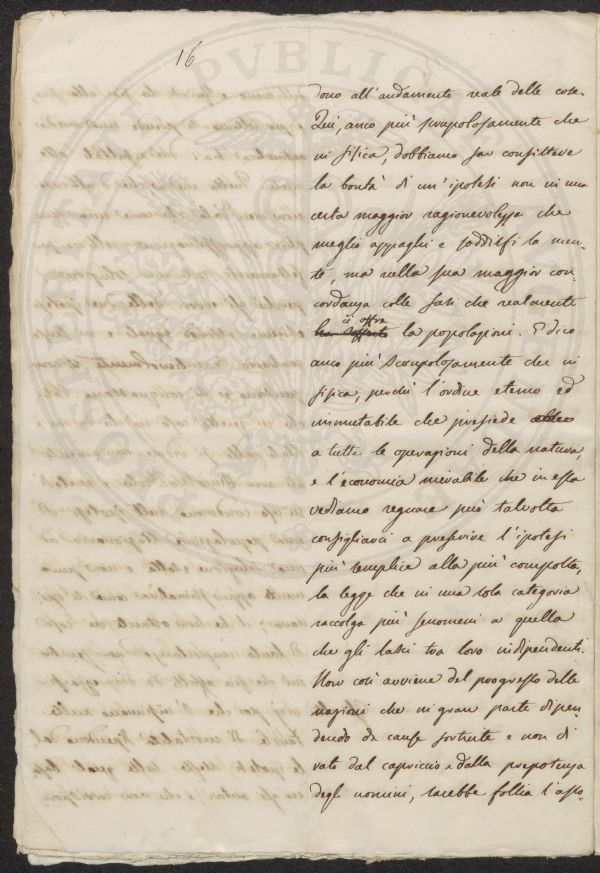 16
dono all'andamento reale delle cose.
Qui, anco più scrupolosamente che
in fisica, dobbiamo far consistere
la bontà di un'ipotesi non in una
certa maggior ragionevolezza che
meglio appaghi e soddisfi la men-
te, ma nella sua maggior con-
cordanza colle fasi che realmente
ci offre
la popolazioni. E dico
anco più scrupolosamente che in
fisica, perchè l'ordine eterno ed
immutabile che presiede
a tutte le operazioni della natura,
e l'economia mirabile che in essa
vediamo regnare può talvolta
consigliarci a preferire l'ipotesi
più semplice alla più composta,
la legge che in una sola categoria
raccolga più fenomeni a quella
che gli lasci tra loro indipendenti.
Non così avviene del progresso delle
nazioni che in gran parte dipen-
dendo da cause fortuite e non di
rado dal capriccio e dalla prepotenza
degli uomini, sarebbe follia l'asso-